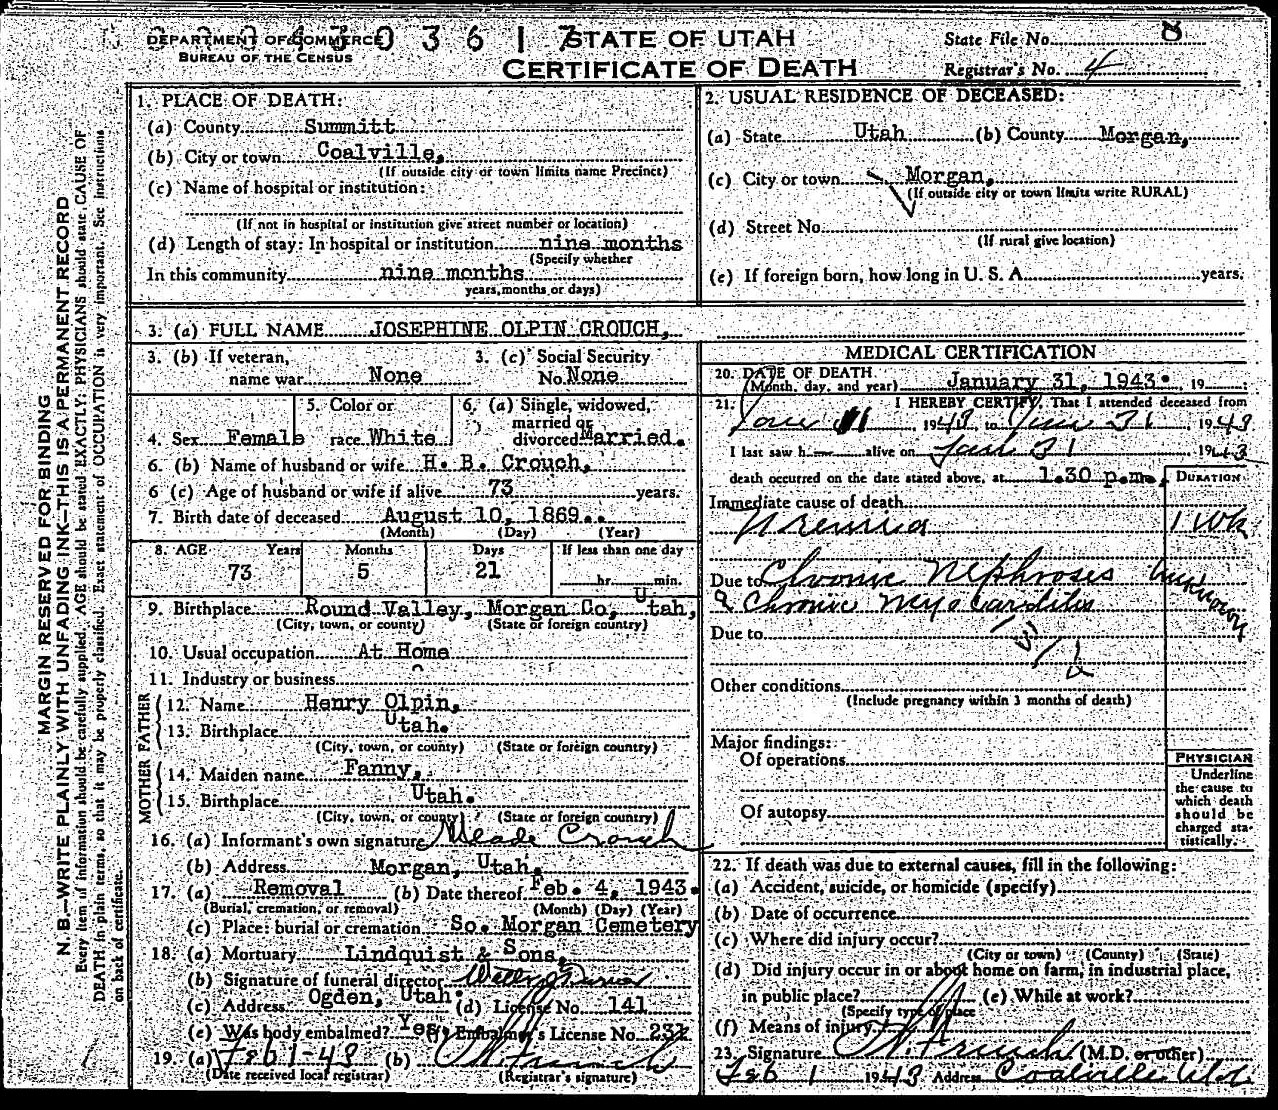 DEPARTMENT OF COMMERCE
BUREAU OF THE CENSUS
STATE OF UTAH
CERTIFICATE OF DEATH
State File No. 8
Registrar's No. 4
MARGIN RESERVED FOR BINDING
N. B.—WRITE PLAINLY WITH UNFADING INK—THIS IS A PERMANENT RECORD
Every item of information should be carefully supplied. AGE should be stated EXACTLY. PHYSICIANS should state CAUSE OF
DEATH in plain terms, so that it may be properly classified. Exact statement of OCCUPATION is very important. See instructions
on back of certificate.
1. PLACE OF DEATH:
(a) County Summitt
(b) City or town Coalville,
(If outside city or town limits name Precinct)
(c) Name of hospital or institution:
(If not in hospital or institution give street number or location)
(d) Length of stay: In hospital or institution nine months
(Specify whether
In this community nine months
years, months or days)
2. USUAL RESIDENCE OF DECEASED:
(a) State Utah (b) County Morgan,
(c) City or town Morgan,
(If outside city or town limits write RURAL)
(d) Street No.
(If rural give location)
(e) If foreign born, how long in U. S. A. years.
3. (a) FULL NAME JOSEPHINE OLPIN CROUCH,
3. (b) If veteran, name war None
3. (c) Social Security No. None
4. Sex Female
5. Color or race White
6. (a) Single, widowed, married or divorced Married.
6. (b) Name of husband or wife H. B. Crouch,
6 (c) Age of husband or wife if alive 73 years.
7. Birth date of deceased August 10, 1869..
(Month) (Day) (Year)
8. AGE Years Months Days If less than one day
73 5 21 hr. min.
9. Birthplace Round Valley, Morgan Co, Utah,
(City, town, or county) (State or foreign country)
10. Usual occupation At Home
11. Industry or business
FATHER
12. Name Henry Olpin,
13. Birthplace Utah.
(City, town, or county) (State or foreign country)
MOTHER
14. Maiden name Fanny,
15. Birthplace Utah.
(City, town, or county) (State or foreign country)
16. (a) Informant's own signature Meade Crouch
(b) Address Morgan, Utah.
17. (a) Removal (b) Date thereof Feb. 4, 1943.
(Burial, cremation, or removal) (Month) (Day) (Year)
(c) Place: burial or cremation So. Morgan Cemetery
18. (a) Mortuary Lindquist & Sons,
(b) Signature of funeral director
(c) Address Ogden, Utah. (d) License No. 141
(e) Was body embalmed? Yes. (f) Embalmer's License No. 231
19. (a) Feb 1-43 (b)
(Date received local registrar) (Registrar's signature)
MEDICAL CERTIFICATION
20. DATE OF DEATH
(Month, day, and year) January 31, 1943. 19
21. I HEREBY CERTIFY, That I attended deceased from
1943, to Jan 31, 1943
I last saw h alive on Jan 31 1943
death occurred on the date stated above, at 1.30 p.m.
DURATION
Immediate cause of death
Uremia 1 wk
Due to Chronic Nephroses unknown
& Chronic Myocarditis
Due to
Other conditions
(Include pregnancy within 3 months of death)
Major findings:
Of operations
Of autopsy
PHYSICIAN
Underline
the cause to
which death
should be
charged sta-
tistically.
22. If death was due to external causes, fill in the following:
(a) Accident, suicide, or homicide (specify)
(b) Date of occurrence
(c) Where did injury occur?
(City or town) (County) (State)
(d) Did injury occur in or about home on farm, in industrial place,
in public place? (e) While at work?
(Specify type of place
(f) Means of injury
23. Signature (M.D. or other)
Feb 1 1943 Address Coalville Utah